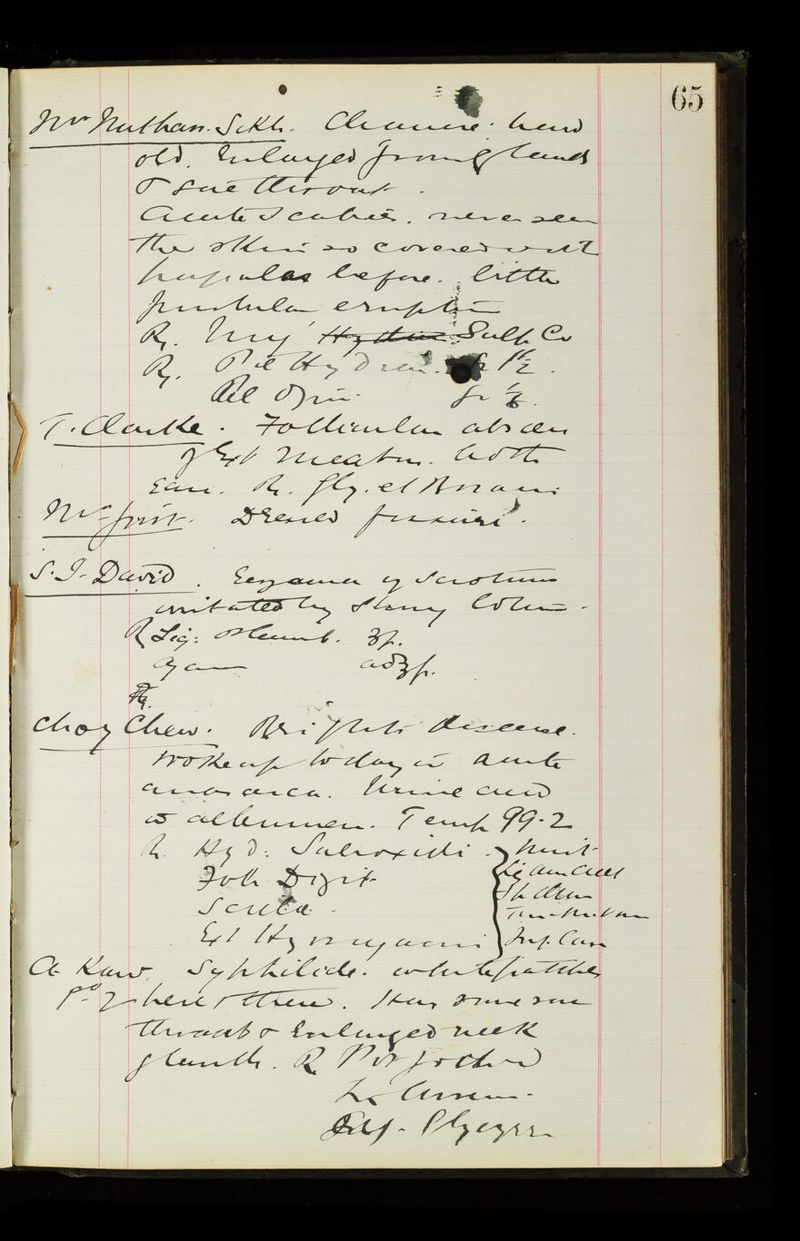 65
Mr Nuthan. Sikh. Chancre: hard
old. Enlarged groin glands
& sore throat.
Acute Scabies. never seen
the skin so covered with
papulae before. little
pustular eruption
R. Ung Hydrar Sulp Co
R. Pil Hydrar. gr 1½.
Pil Opii gr
T. Clarke. Follicular abscess
of Ext Meatus. both
Ears. R. Gly. et Boraci
Dressed fissure.
S. I. David. Eczema of Scrotum
irritated by Strong lotion.
R Liq: Plumb. ʒp.
Aqam adʒp.
R.
Choy Chew. Brights disease.
woke up today in acute
anasarca. Urine acid
albumen. Temp 99.2
R. Hyd: Suboxidi. Mist
Foli Digit Liq Am Acet
Scilla
Ext Hyoscyami Inf. Cas
A Kaw. Syphilide. white patches
here & there. Has some sore
throat & Enlarged neck
glands. R Pot Iod
Glycyrr